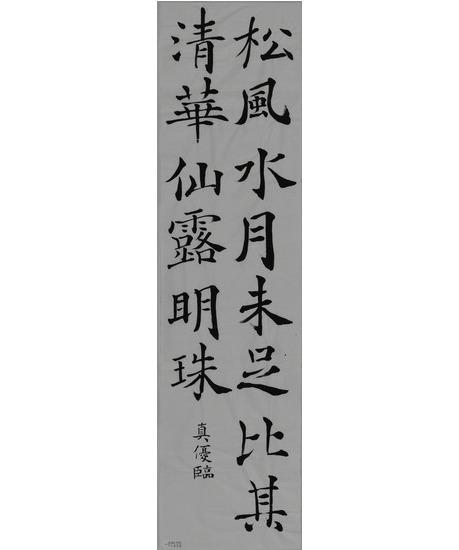 松風水月未足比其
清華仙露明珠
真優臨